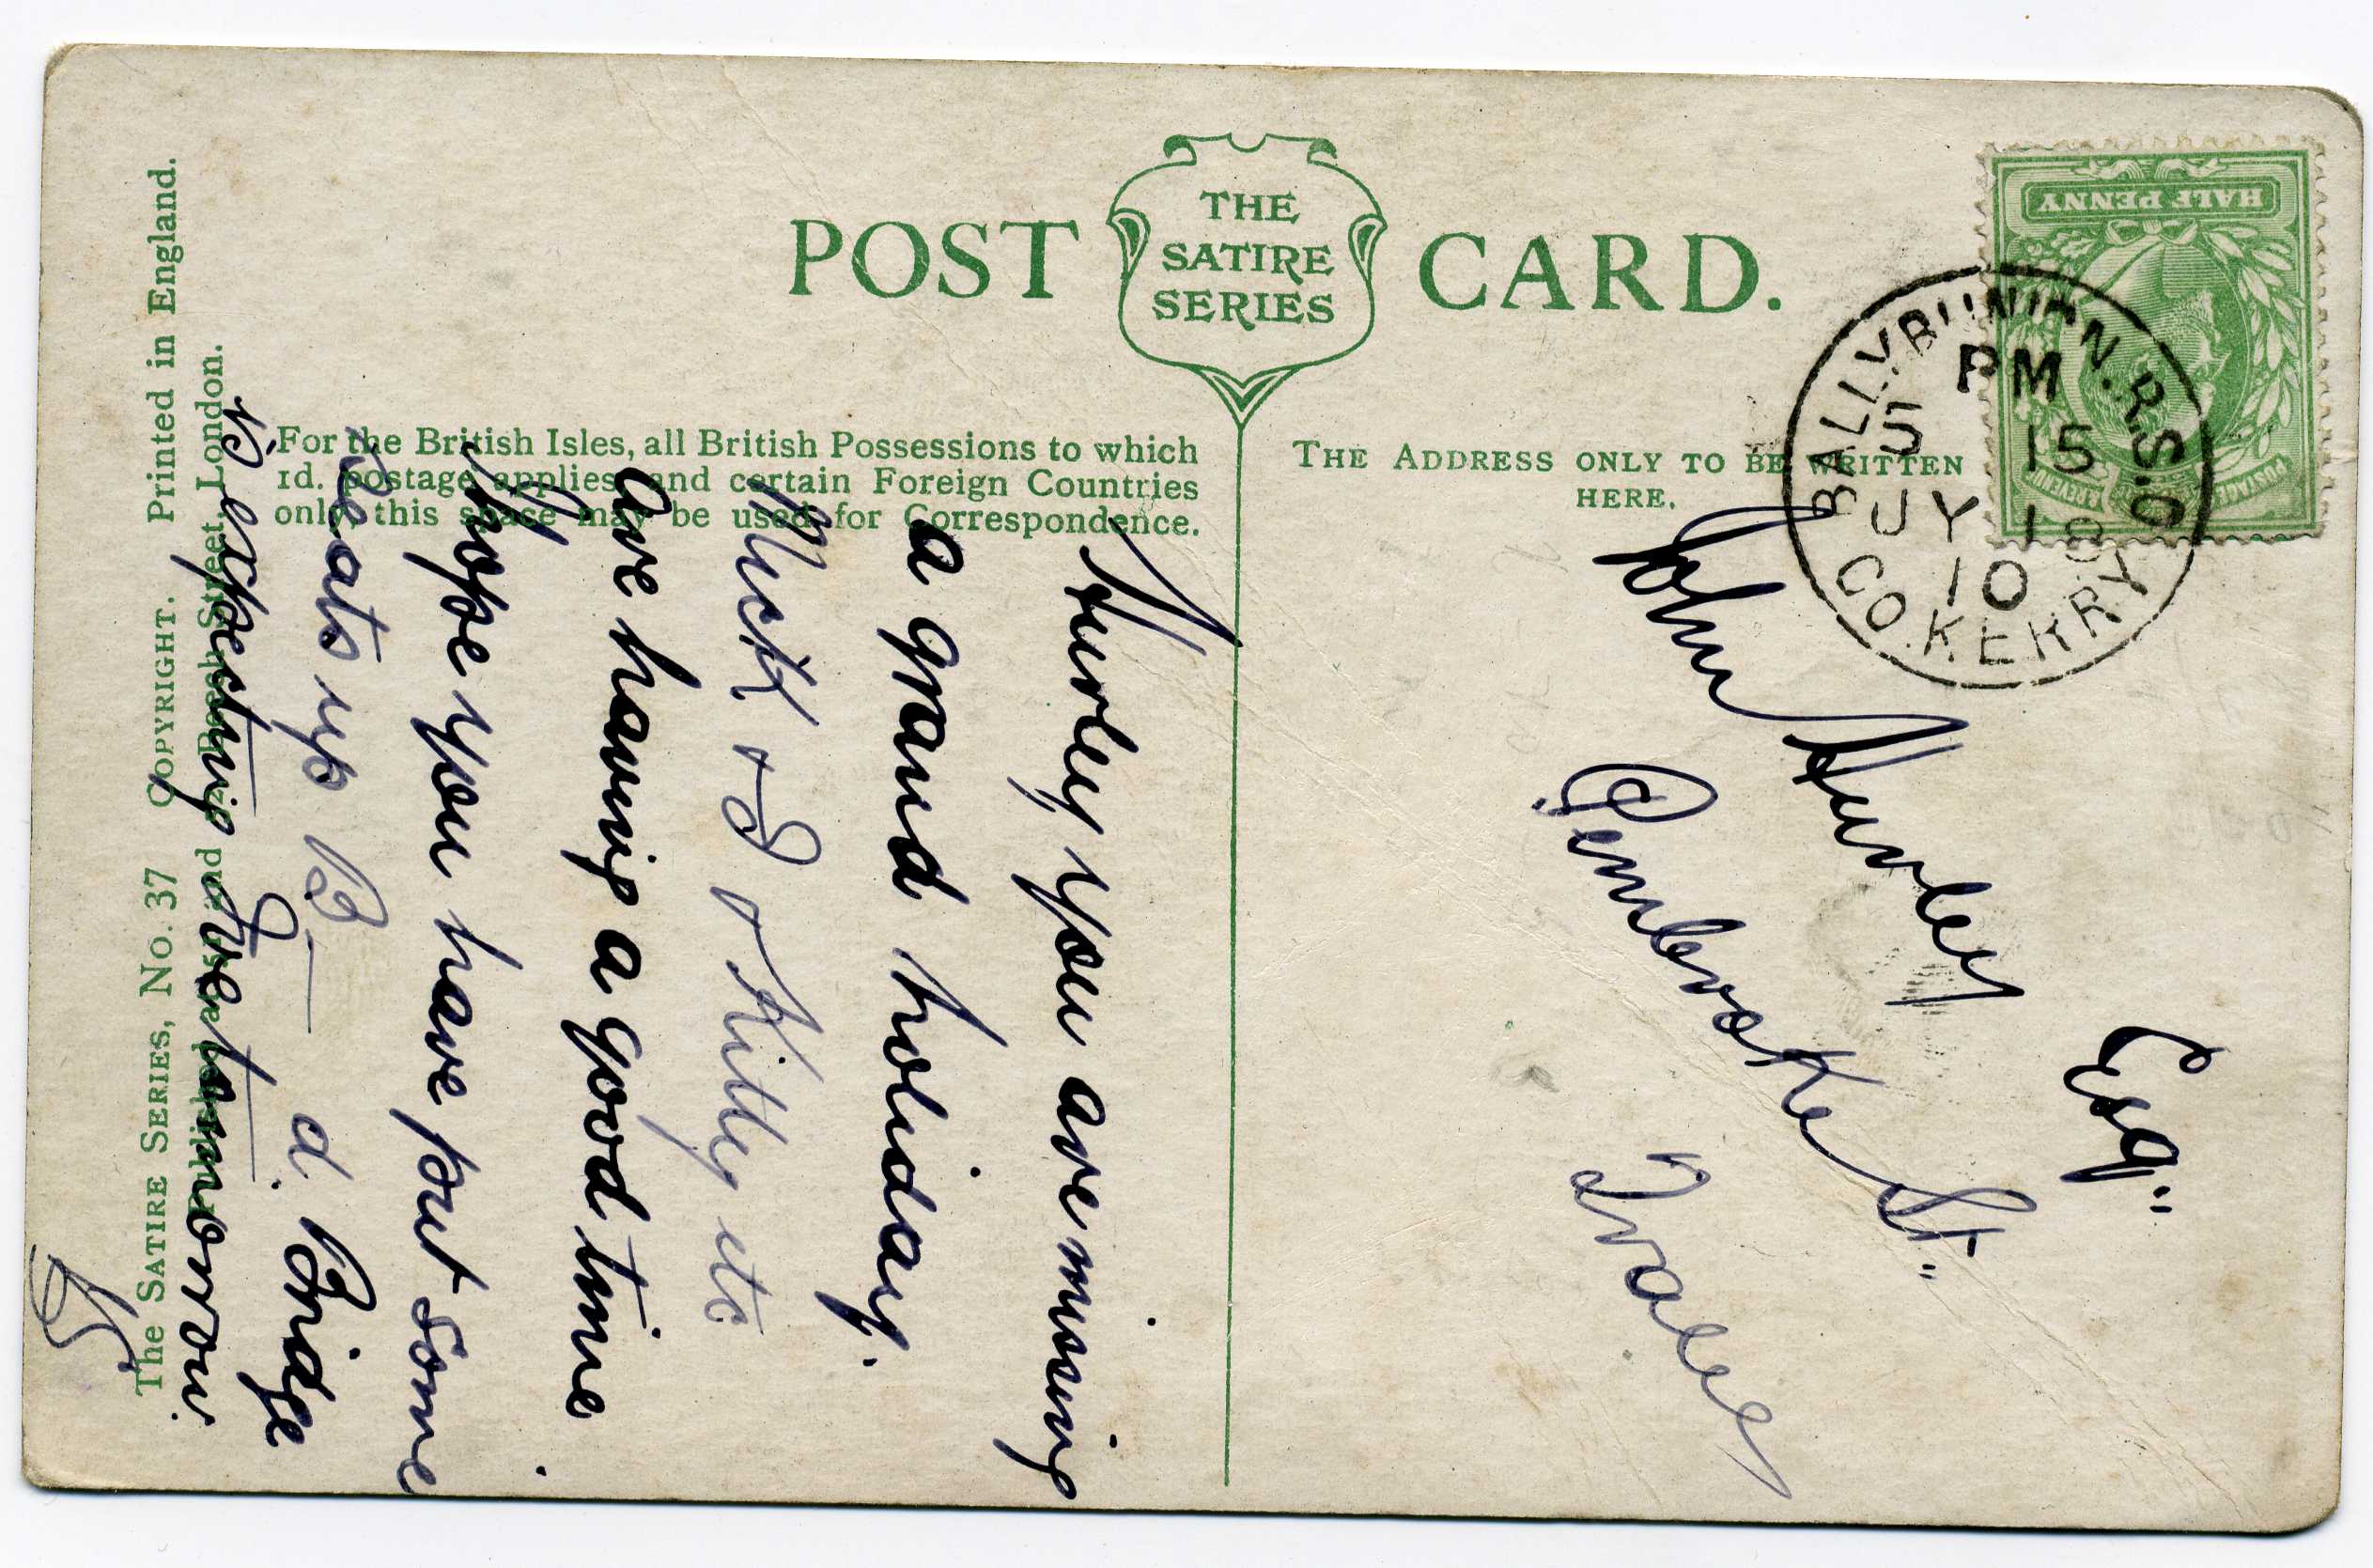 POST CARD.
THE
SATIRE
SERIES
For the British Isles, all British Possessions to which
1d. postage applies, and certain Foreign Countries
only, this space may be used for Correspondence.
THE ADDRESS ONLY TO BE WRITTEN
HERE.
HALF PENNY
POSTAGE & REVENUE
BALLYBUNION.R.S.O
PM
5 15
JY 18
10
CO. KERRY
Hurley you are missing
a grand holiday.
Mick & I & Kitty etc
are having a good time
Hope you have put some
Seats up B— d. Bridge
is expecting Ive tomorrow.
John Hurley
Esq"
Pembroke St."
Tralee
The SATIRE SERIES, No. 37 COPYRIGHT. Printed in England.
Published at 4, 5 and Beech Street, London.